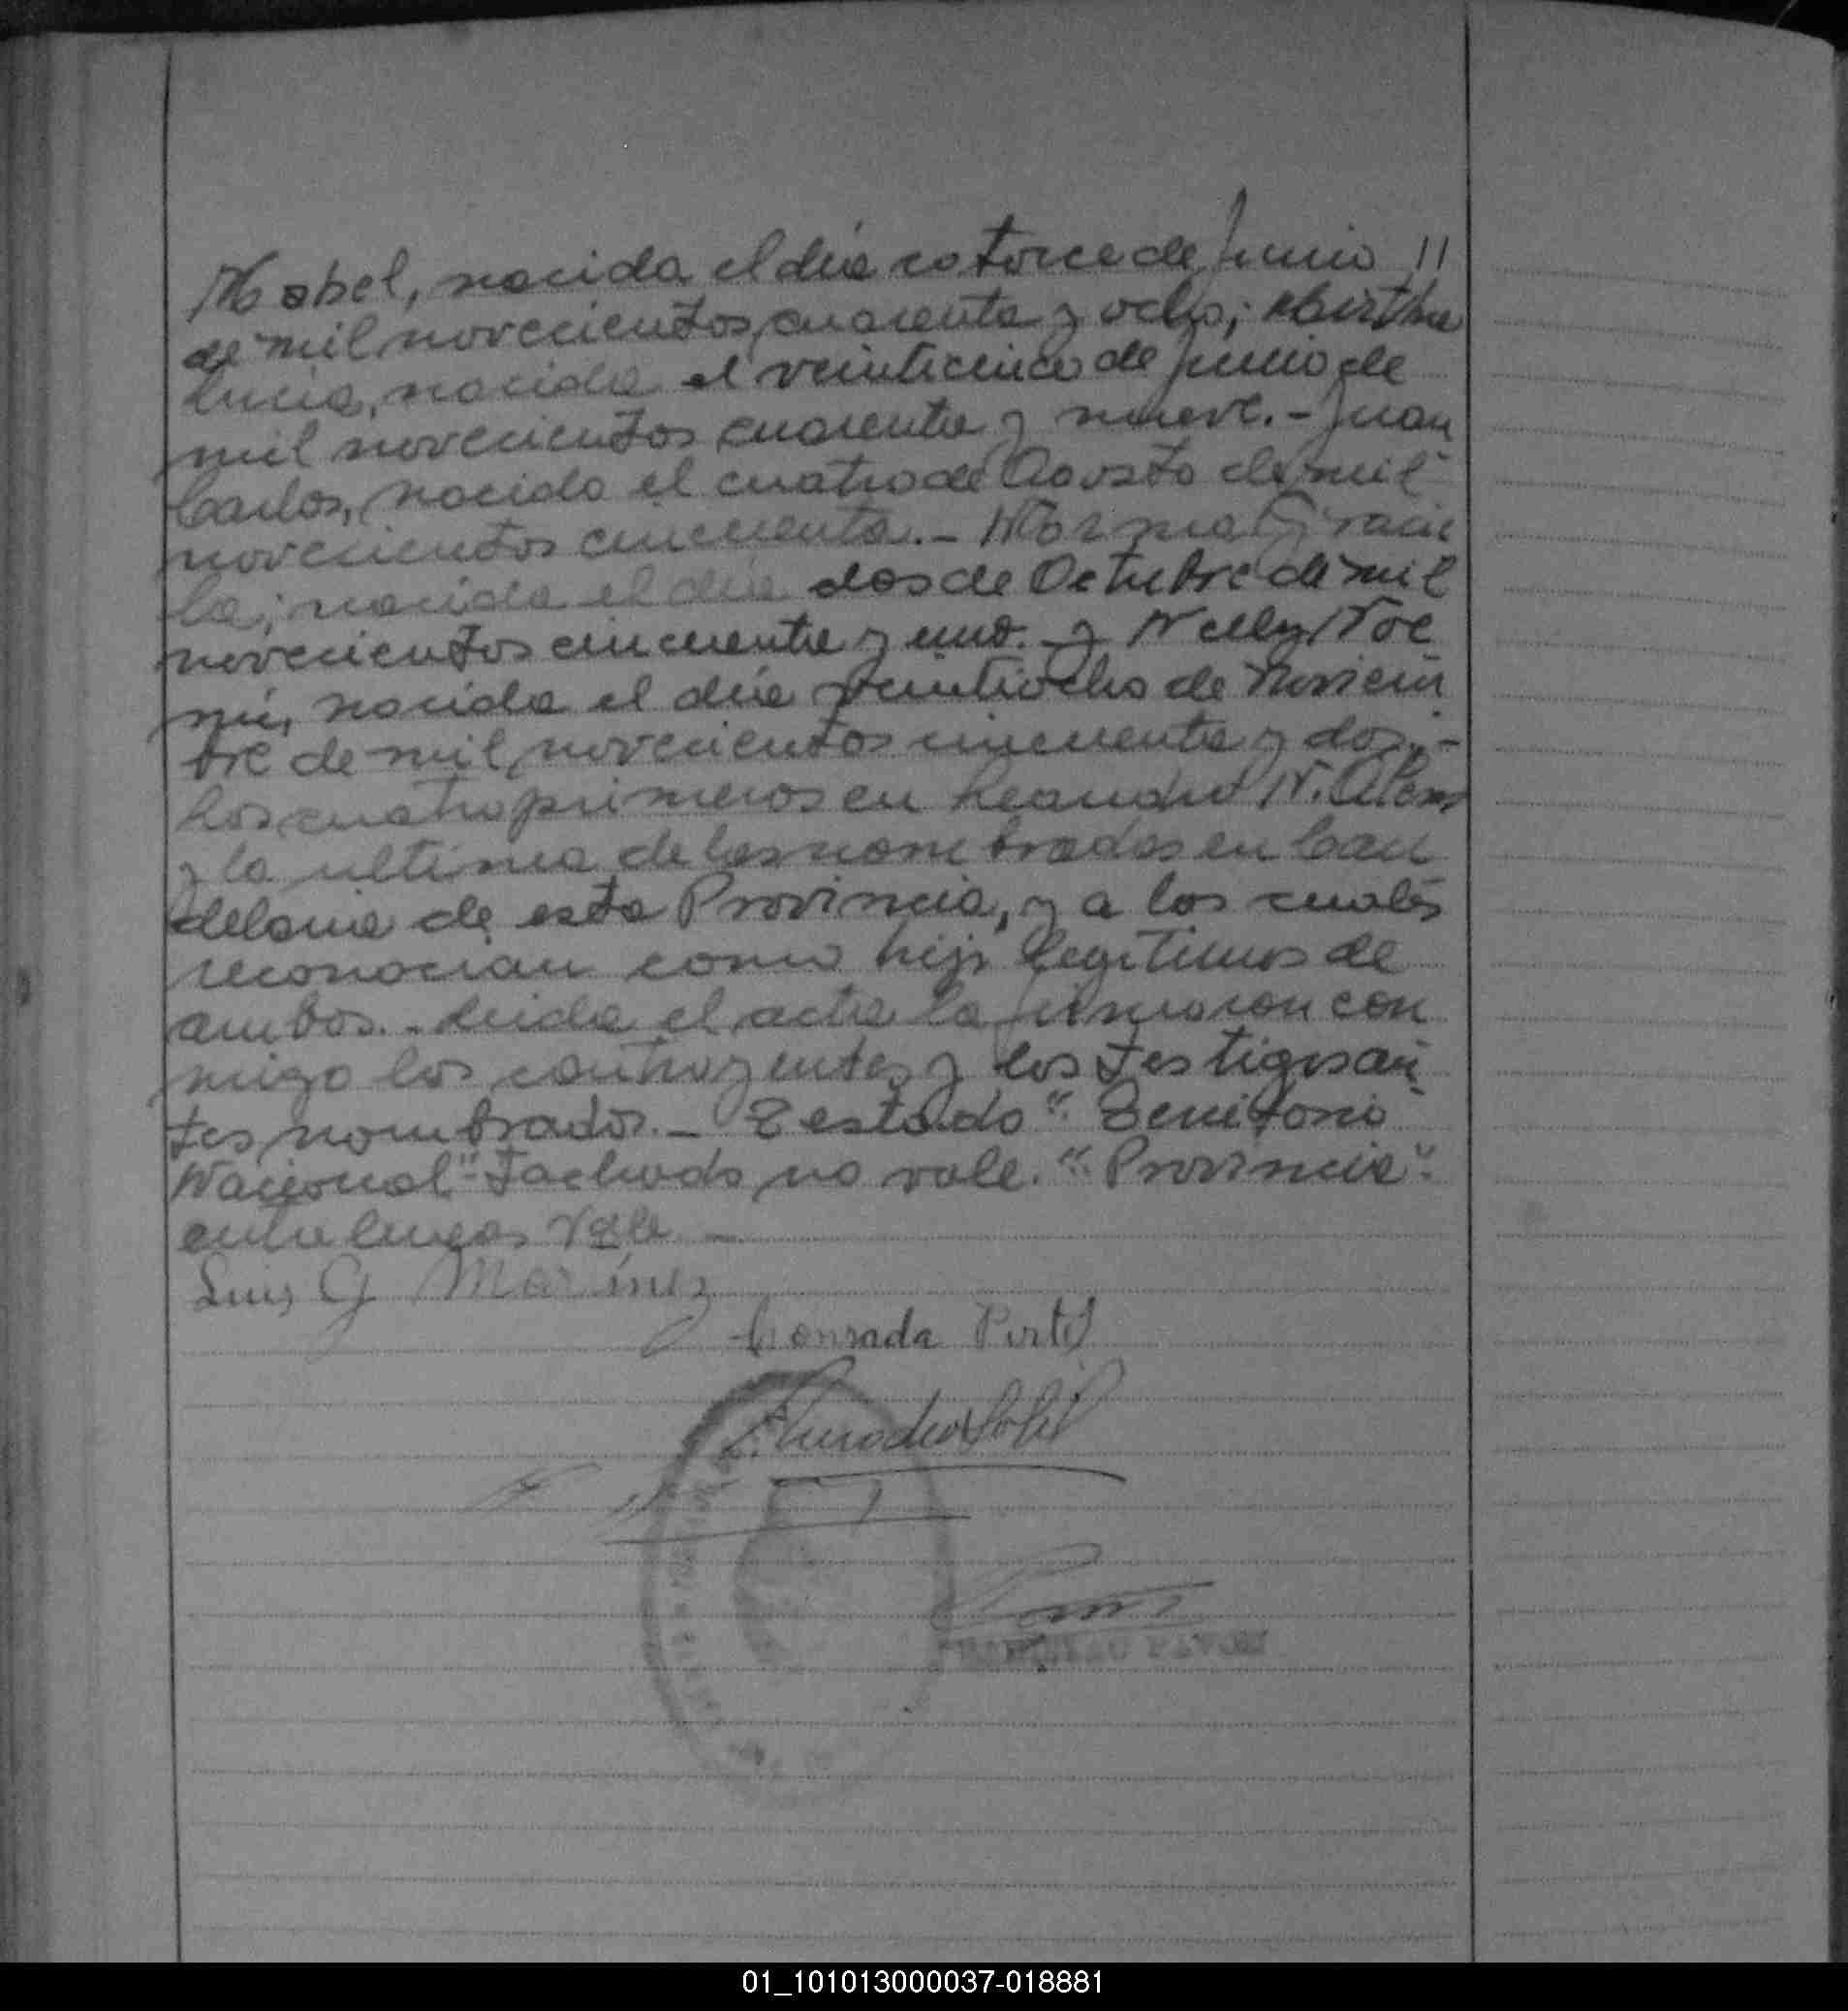 Mabel, nacida el día catorce de Junio //
de mil novecientos, cuarenta y ocho; Mirtha
Lucia, nacida el veinticinco de Junio de
mil novecientos cuarenta y nueve.- Juan
Carlos, nacido el cuatro de Agosto de mil
novecientos cincuenta.- Norma Gracie
la; nacida el día dos de Octubre de mil
novecientos cincuenta y uno.- y Nelly Noe
mi, nacida el día veintiocho de Noviem
bre de mil novecientos cincuenta y dos.-
Los cuatro primeros en Leandro N. Alem
y la ultima de los nombrados en Can
delaria de esta Provincia, y a los cuales
reconocian como hijos legitimos de
ambos.- Leida el acta la firmaron con
migo los contrayentes y los testigos an
tes nombrados.- Testado "Territorio
Nacional" Tachado no vale. "Provincia"
entre lineas Vale -
Luis G
Conrada
PAVON
01_101013000037-018881